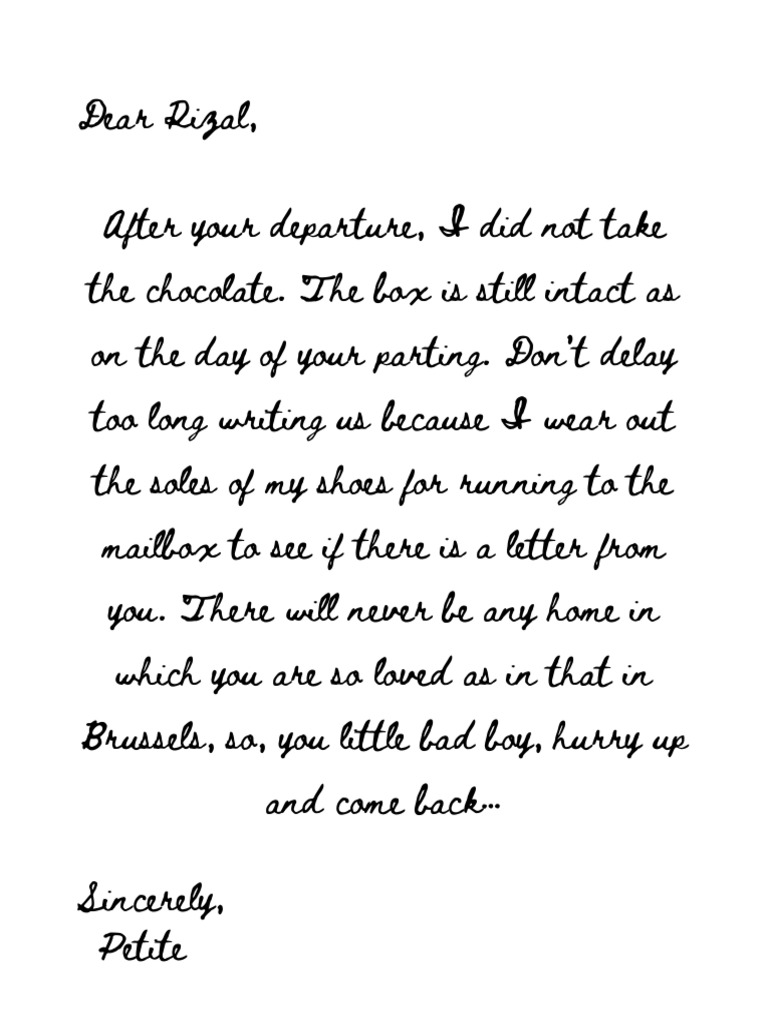 Dear Rizal,
After your departure, I did not take
the chocolate. The box is still intact as
on the day of your parting. Don't delay
too long writing us because I wear out
the soles of my shoes for running to the
mailbox to see if there is a letter from
you. There will never be any home in
which you are so loved as in that in
Brussels, so, you little bad boy, hurry up
and come back...
Sincerely,
Petite